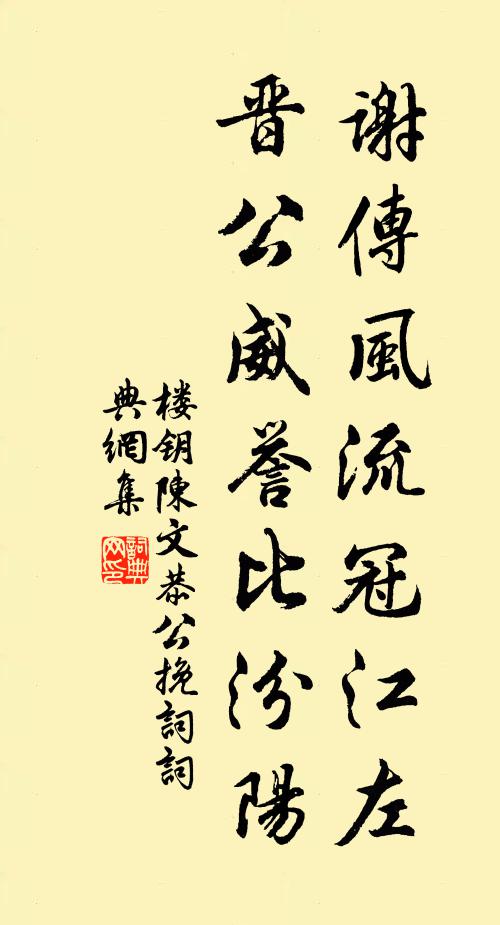 謝傅風流冠江左
晋公威誉比汾陽
楼钥陳文恭公挽詞詞
典網集
詞典网印